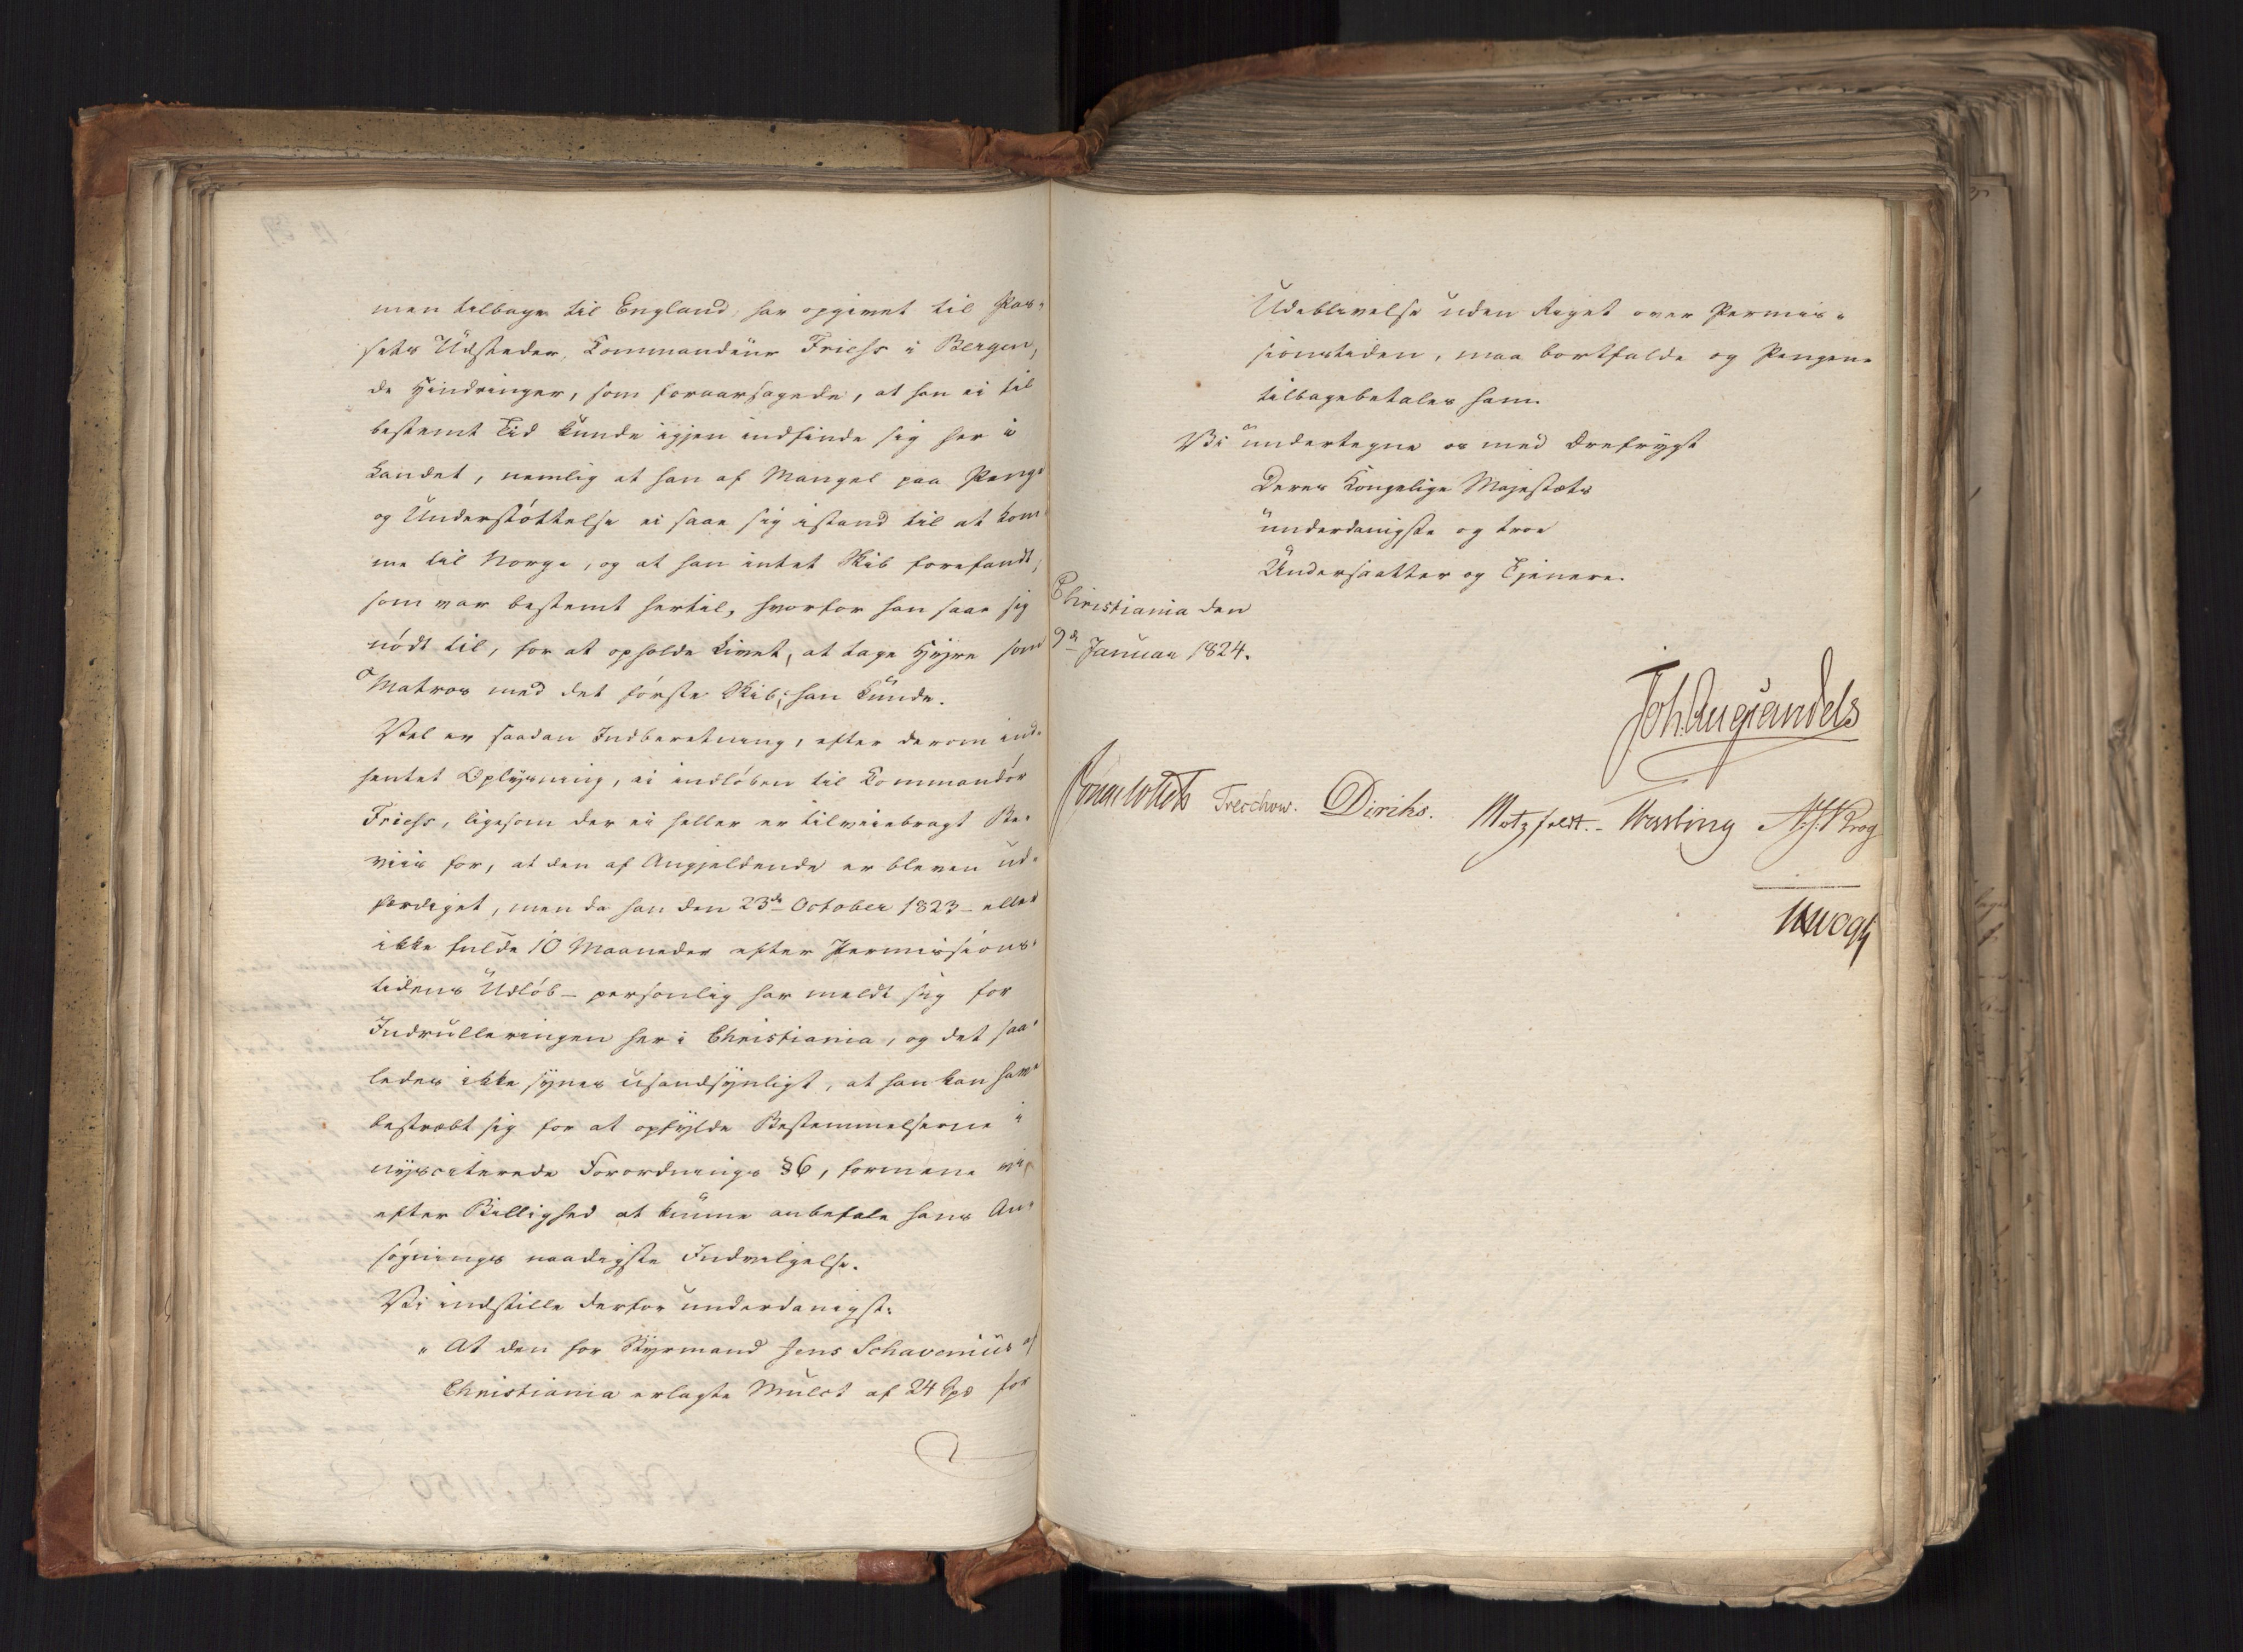 men tilbage til England, har opgivet til Pas-
sets Udsteder, Commandeur Friess i Bergen,
de Hindringer, som foraarsagede, at han ei til
bestemt Tid kunde igjen indfinde sig her i
Landet, nemlig at han af Mangel paa Penge
og Understøttelse ei saae sig istand til at kom-
me til Norge, og at han intet Skib forefandt,
som var bestemt hertil, hvorfor han saae sig
nødt til, for at opholde Livet, at tage Hyre som
Matros med det første Skib, han kunde.
Vel er saadan Indberetning, efter derom ind-
hentet Oplysning, ei indløben til Commandør
Friess, ligesom der ei heller er tilveiebragt Be-
viis for, at den af Angjeldende er bleven ud-
færdiget, men da han den 23de October 1823 – eller
ikke fulde 10 Maaneder efter Permissions-
tidens Udløb – personlig har meldt sig for
Indrulleringen her i Christiania, og det saa-
ledes ikke synes usandsynligt, at han kan have
bestræbt sig for at opfylde Bestemmelserne i
nyscaterede Forordnings §6, formene vi,
efter Billighed at kunne anbefale hans An-
søgnings naadigste Indvilgelse.
Vi indstille derfor underdanigst:
" At den for Styrmand Jens Schavenius af
Christiania erlagte Mulct af 24 Spd for
Udeblivelse uden Riget over Permis-
sionstiden, maa bortfalde og Pengene
tilbagebetales ham.
Vi undertegne os med Ærefrygt
Deres Kongelige Majestæts
underdanigste og troe
Undersaatter og Tjenere.
Christiania den
9de Januar 1824.
Joh. Aug. Sandels
Jonas Collett Treschow. Diriks. Motzfeldt. Krog